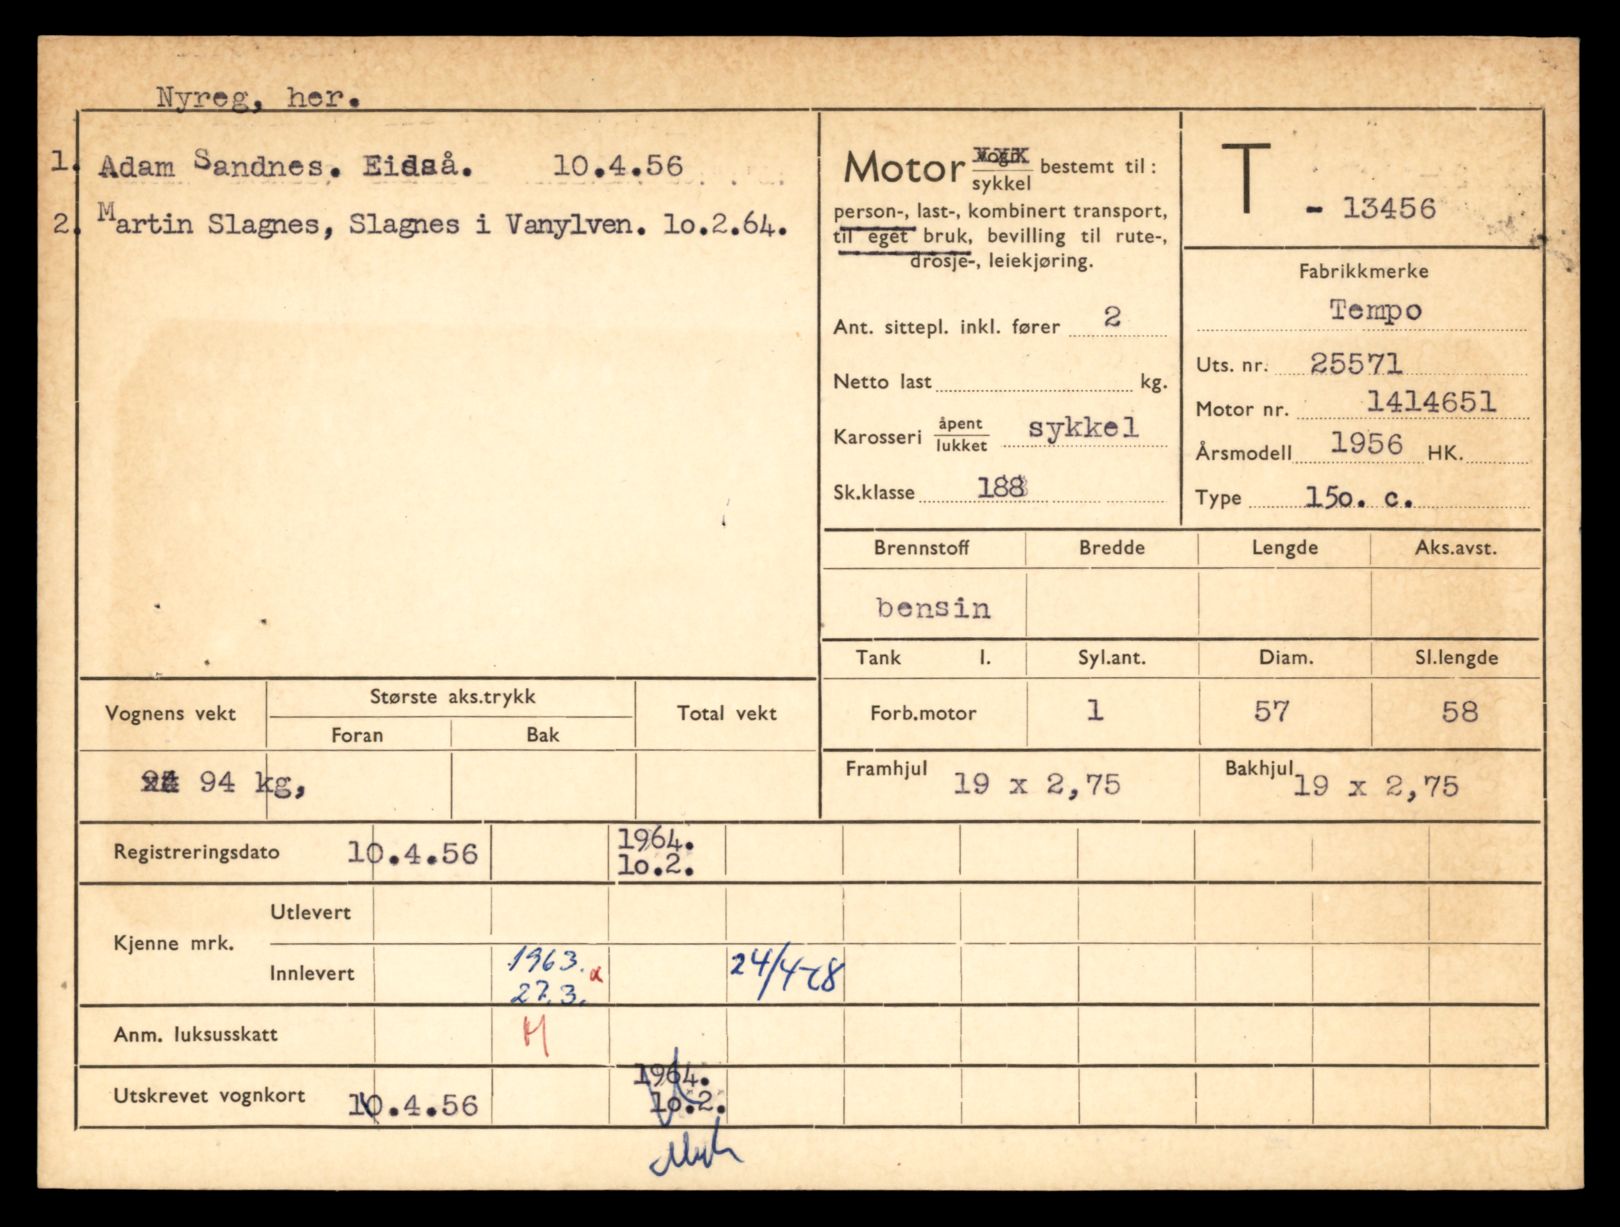 Nyreg, her.
1. Adam Sandnes. Eidså. 10.4.56
2. Martin Slagnes, Slagnes i Vanylven. 10.2.64.
Motor vogn/sykkel bestemt til:
person-, last-, kombinert transport,
til eget bruk, bevilling til rute-,
drosje-, leiekjøring.
Ant. sittepl. inkl. fører 2
Netto last kg.
Karosseri åpent/lukket sykkel
Sk.klasse 188
T - 13456
Fabrikkmerke
Tempo
Uts. nr. 25571
Motor nr. 1414651
Årsmodell 1956 HK.
Type 150. c.
Brennstoff Bredde Lengde Aks.avst.
bensin
Tank l. Syl.ant. Diam. Sl.lengde
Forb.motor 1 57 58
Framhjul 19 x 2,75 Bakhjul 19 x 2,75
Vognens vekt Største aks.trykk Total vekt
Foran Bak
94 kg,
Registreringsdato 10.4.56 1964. 10.2.
Kjenne mrk. Utlevert
Innlevert 1963. 27.3. 24/4-78
Anm. luksusskatt
Utskrevet vognkort 10.4.56 1964. 10.2.